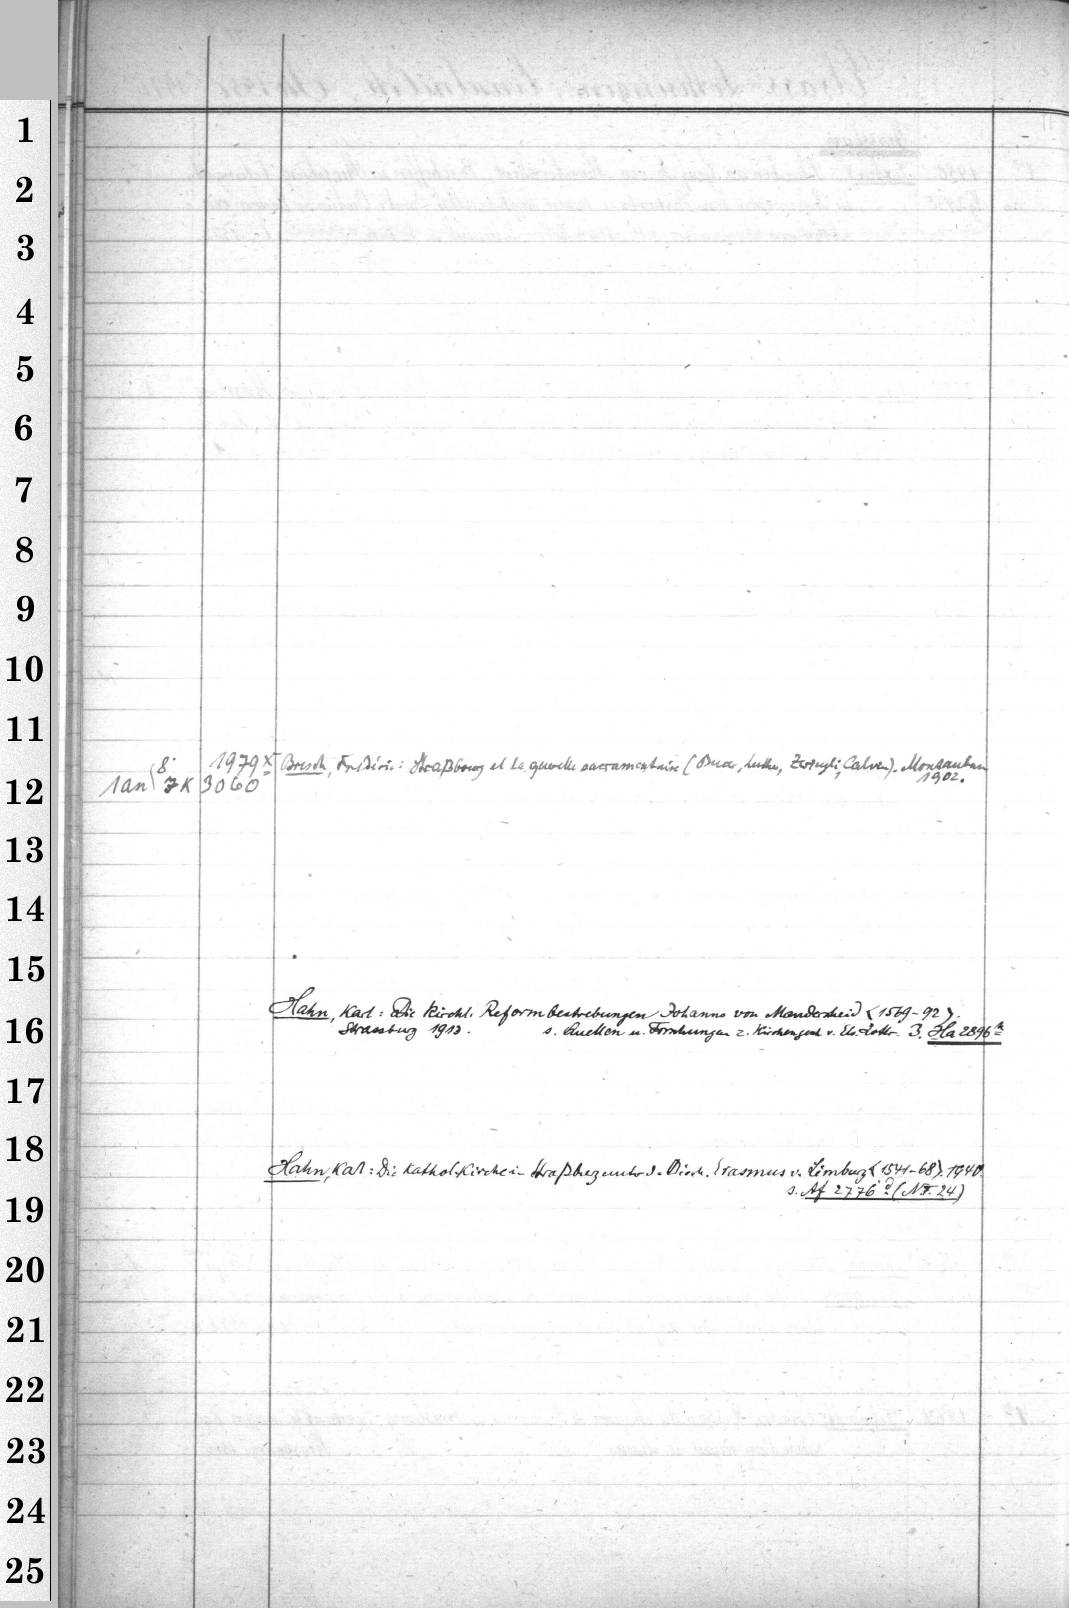 1
2
3
4
5
6
7
8
9
10
11
8° 1979 x Bresch, Frédéric: Straßbourg et la querelle sacramentaire (Bucer, Luther, Zwingli, Calvin). Montauban
1an 7K 3060 1902.
12
13
14
15
Hahn, Karl: Die kirchl. Reformbestrebungen Johanns von Manderscheid <1569-92>.
16 Strassburg 1913. s. Quellen u. Forschungen z. Kirchengesch v. Els. Lothr. 3. Ha 2896
17
18
Hahn, Karl: Die kathol. Kirche in Straßbg unter d. Bisch. Erasmus v. Limburg <1541-68>. 1940.
s. Af 2776 d (NF. 24)
19
20
21
22
23
24
25